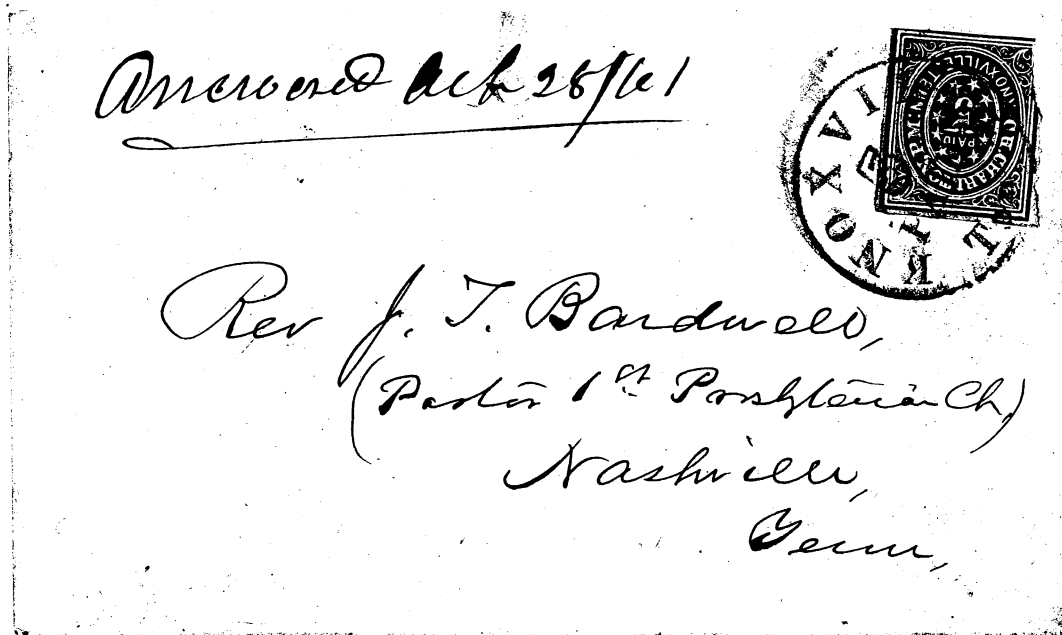 Answered Oct 28/61
KNOXVI
T
C.H. CHARLTON P.M. KNOXVILLE TENN.
PAID
5 CTS
Rev J. T. Bardwell,
(Pastor 1st Presbyterian Ch,)
Nashville,
Tenn,